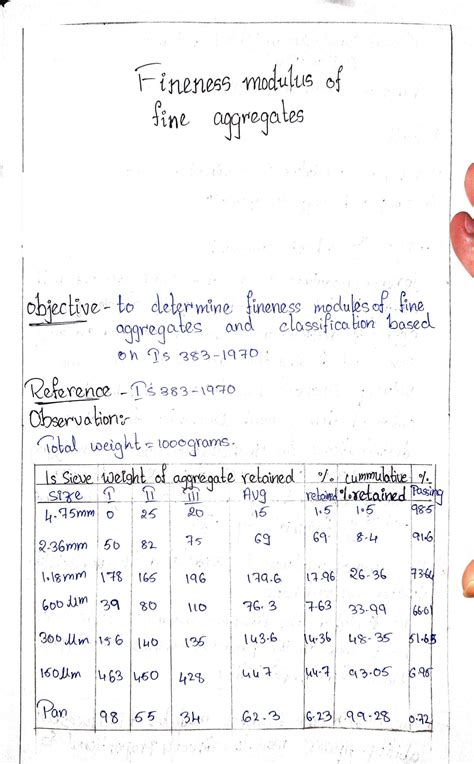 Fineness modulus of
fine aggregates
objective - to determine fineness modules of fine
aggregates and classification based
on Is 383-1970.
Reference - Is 383-1970
Observation:-
Total weight = 1000grams.
Is Sieve weight of aggregate retained %. cummulative %.
size I II III Avg retained %.retained Passing
4.75mm 0 25 20 15 1.5 1.5 98.5
2.36mm 50 82 75 69 69 8.4 91.6
1.18mm 178 165 196 179.6 17.96 26.36 73.64
600 µm 39 80 110 76.3 7.63 33.99 66.01
300 µm 156 140 135 143.6 14.36 48-35 51.65
150µm 463 450 428 447 44.7 93.05 6.95
Pan 98 55 34 62.3 6.23 99.28 0.72